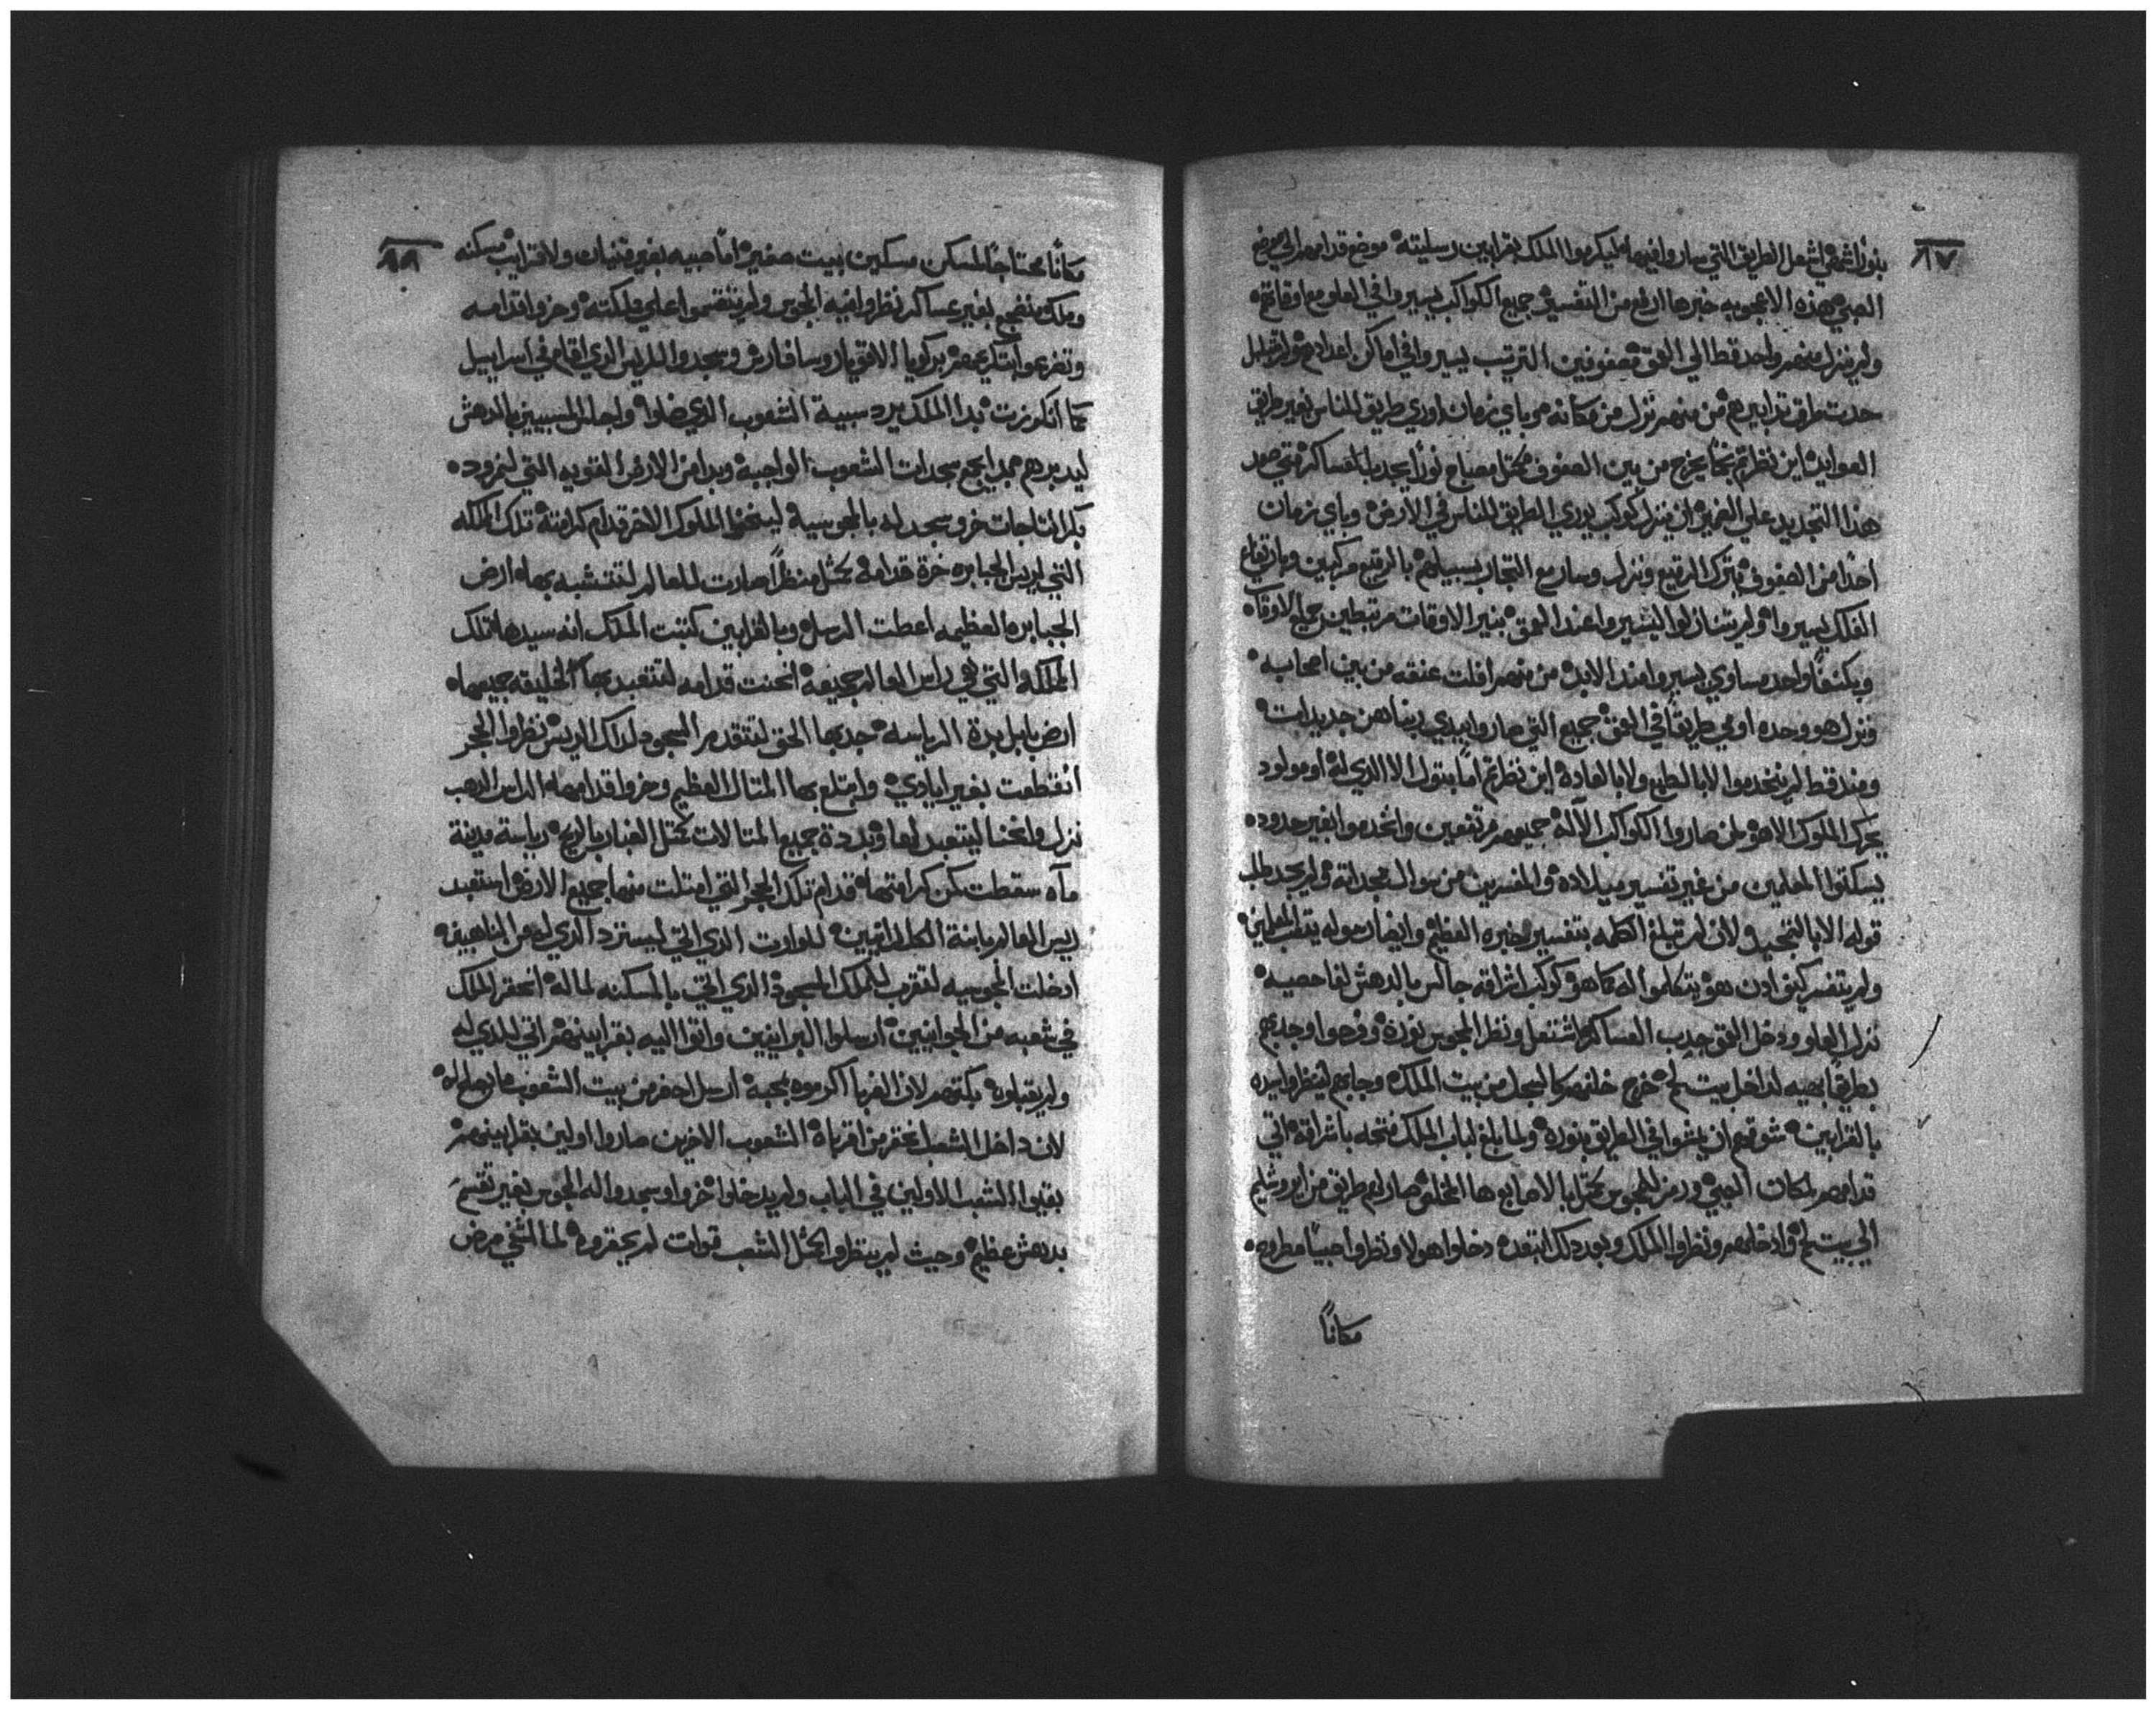 ٨٧
بنورًا شمعي اشعل الطريق التي ساروا فيها ليكرموا الملك بقرابين رسليته موضع قدامهم الي موضع
الصبي هذه الاعجوبه خبرها ارفع من التفسير جميع الكواكب يسيروا في العلو مع اوقاتهم
ولم ينزل منهم واحد قط الي العمق مصفوفين الترتيب يسيروا في اماكن اعدادهم
حدت طرق تدابيرهم من منهم نزل من مكانه هو باي زمان اوري طريق للناس بغير طريق
العوايد اين نظرتم نجمًا يخرج من بين الصفوف كمثل مصباح نورًا يجدب العساكر
هذا التجديد علي التمييز ان ينزل كوكب يوري الطريق للناس في الارض وباي زمان
احدًا من الصفوف يترك الرقيع وينزل وسار مع التجار بسبيلهم بالرقيع مركبين وبارتفاع
الفلك يسيروا ولم يتنازلوا ليسيروا عند العمق بنير الاوقات مرتبطين جميع الاوقات
ويكنفًا واحد مساوي يسيروا عند الابد من منهم افلت عنقه من بين اصحابه
ونزل هو وحده اوري طريقًا في العمق جميع التي صاروا بيدي ربنا هن جديدات
ومند قط لم يتخدموا لا بالطبع ولا بالعاده اين نظرتم امًا بتول الا الدي له او مولود
يحرك الملوك الا هو لمن صاروا الكواكب الآله جميعهم مرتفعين واتخدموا بغير حدود
يسكتوا المعلمين من غير تفسير ميلاده والمفسرين من سوال سجداته ولم يجد طلب
قوله الا بالتمجيد ولان لم تبلغ الكلمه بتفسير خبره العظيم وايضا رسوله يتعب المعلمين
ولم يتفسر كيف ادن هو يتكلموا اله كما هو كوكب اشراقه جالس بالدهش لفاحصيه
نزل العلو ودخل العمق جدب العساكر اشتعل ونظر المجوس نوره وفرحوا وجدبهم
بطريقًا بهيه لداخل بيت لحم خرج خلفهم كالعجل من بيت الملكه وجابهم لينظروا سيده
بالقرابين شوقهم ان يمشوا في الطريق بنوره ولما بلغ لباب الملك فتحه باشراقه اتي
قدامهم لمكان الصبي ورمز للمجوس كمثل بالاصابع ها المخلص صار لهم طريق من ايروشليم
الي بيت لحم وادخلهم ونظروا الملك وبعد دلك ابتعد دخلوا هولا ونظروا صبيًا مطروح
مكانًا
٨٨
مكانًا محتاجًا لمسكن مسكين بيت صغير امًا صبيه بغير قنيان ولا قرايب مسكنه
وملك متضجع بغير عساكر نظروا فيه المجوس ولم ينقسموا علي مملكته وخروا قدامه
وتضرعوا ابتكر عمهم بركويا الاقويا روسا فارس وسجدوا للريس الدي اقام في اسراييل
كما انكرزت بدا الملك يرد سبية الشعوب الدي ضلوا واجل المسبيين بالدهش
ليدبرهم مجد ايجمع سجدات الشعوب الواجبه وبدا من الارض القويه التي لنمرود
بكر التاجات خر وسجد له بالمجوسيه ليتحفظ الملوك الاخر قدام كرامته تلك المملكه
التي لريس الجبابره خرة قدامه كمثل منظرًا صارت للعالم لتتشبه بها ارض
الجبابره العظيمه اعطت الرسل وبالقرابين كتبت الملك انه سيدها تلك
المملكه التي هي راس العالم جميعه انحنت قدامه لتتعبد بها الخليقه جميعها
ارض بابل بدة الرياسه جدبها الحق لتتقدم السجود لدلك الريس نظروا الحجر
انقطعت بغير ايادي وابتلع بها المتال العظيم وخروا قدامها الراس الدهب
نزل وانحنا ليتعبد لها وبددة جميع المتالات كمثل الغبار بالريح رياسة مدينة
ماه سقطت من كرامتها قدام تلك الحجر التي امتلت منها جميع الارض استعبد
ريس العالم مابنة الكلدانيين للوارت الدي اتي ليسترد الدي له من الناهبين
ادخلت المجوسيه لتقرب للملك المسجود الدي اتي بالمسكنه لماله احتقر الملك
في شعبه من الجوانيين ارسلوا البرانيين واتوا اليه بقرابينهم اتي للدي له
ولم يقبلوه بكتوهم لان الغربا اكرموه بمحبة ارسل احضر من بيت الشعوب ما يصلح له
لان داخل الشعب احتقر من اقرباه الشعوب الاخرين صاروا اولين بقرابينهم
بقيوا الشعب الاولين في الباب ولم يدخلوا خروا وسجدوا له المجوس بغير تقسم
بدهش عظيم وحيث لم ينظروا كمثل الشعب قوات لم يحقروه لما الشفي مرض